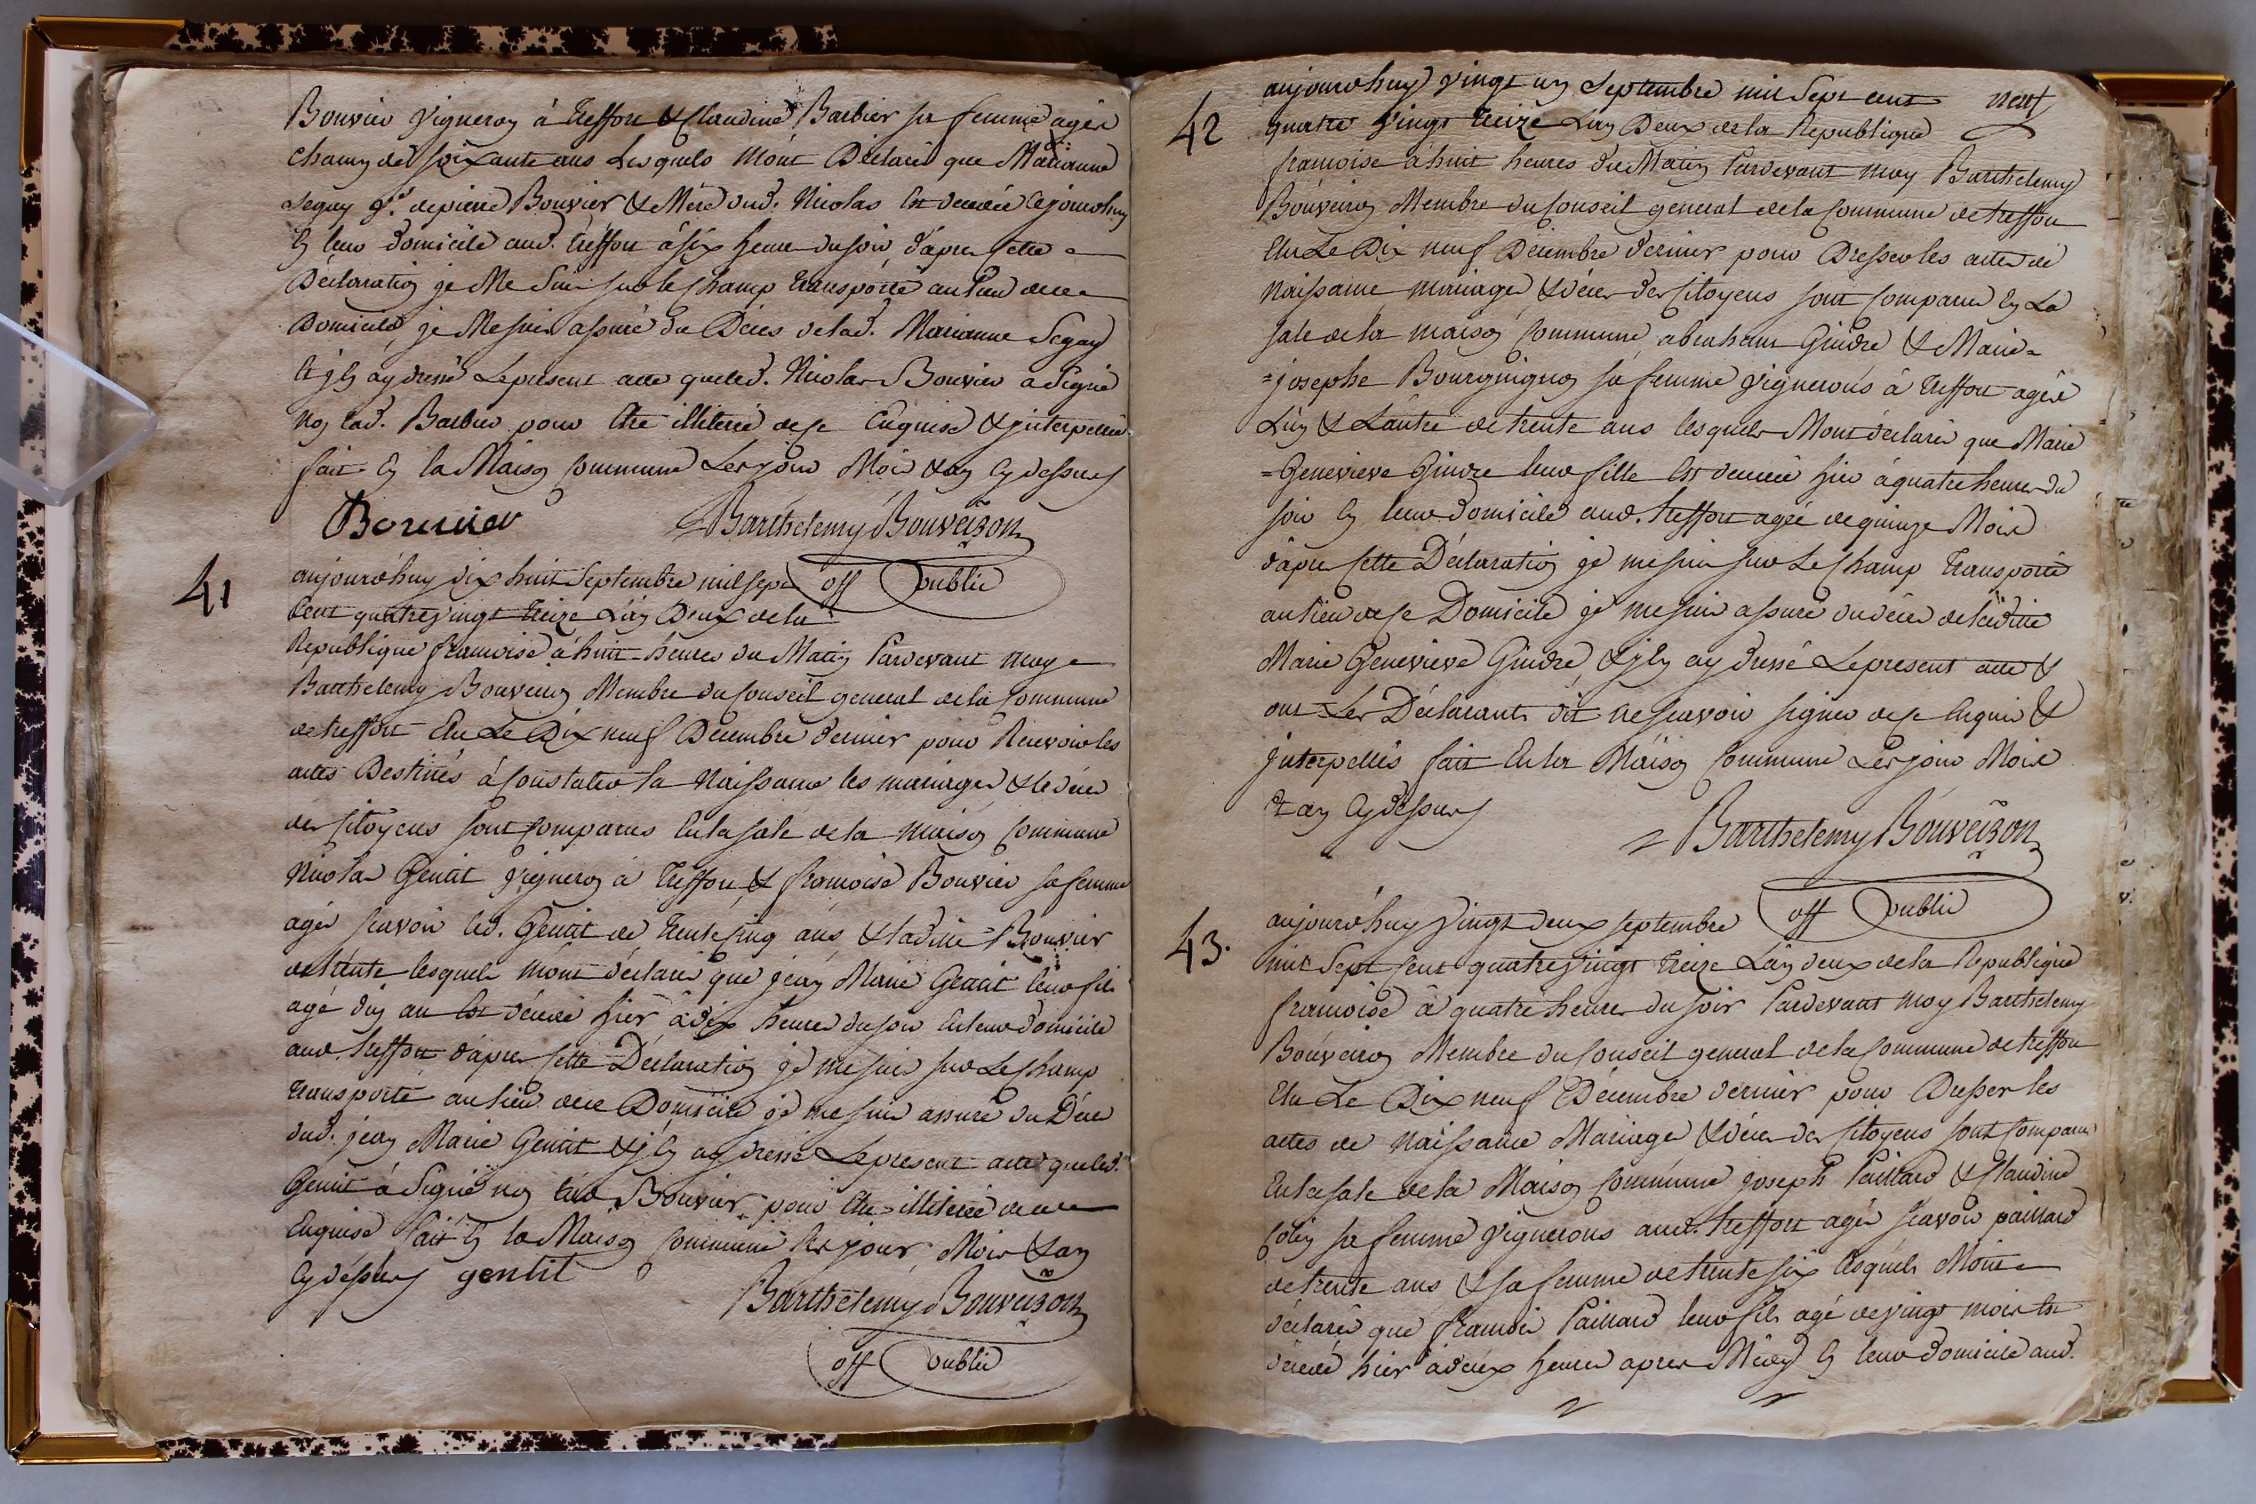 Bouvier vigneron à Treffort & Claudine Barbier sa femme agés
chacun de soixante ans Lesquels m'ont Déclaré que Marianne
Segay de pierre Bouvier & Mère dud. Nicolas Est décédée Cejourdhuy
En leur domicile aud. Treffort à six heure du soir, d'après cette
Déclaration je Me Suis sur le champ transporté au lieu de ce
Domicile, je Me suis assuré du Décès de lad. Marianne Segay
et j'En ay dressé Le present acte que led. Nicolas Bouvier a Signé
non lad. Barbier pour Etre illiterée de ce Enquise & interpellée
fait En la Maison Commune Les jour Mois & an Cy dessus
Bouvier Barthelemy Bouveiron
off public
41
aujourdhuy dix huit Septembre mil sept
Cent quatre vingt treize L'an Deux de la
Republique francoise à huit heures du Matin Pardevant moy
Barthelemy Bouveiron Membre du Conseil general de la Commune
de treffort Elu Le Dix neuf Décembre dernier pour Recevoir les
actes Destinés à Constater la Naissance les mariages & le décès
des Citoyens sont Comparus En la sale de la maison Commune
Nicolas Gentit vigneron à Treffort & francoise Bouvier sa femme
agés scavoir led. Gentit de trente cinq ans & laditte Bouvier
de trente lesquels m'ont déclaré que jean Marie Gentit leur fils
agé d'un an Est décédé hier à dix heures du soir En leur domicile
aud. treffort d'après cette Déclaration je me suis sur Le champ
transporté au lieu de ce Domicile je me suis assuré du Décès
dud. jean Marie Gentit & j'En ay dressé Le present acte que led.
Gentit à Signé non lad. Bouvier pour Etre illiterée de ce
Enquise fait En la Maison Commune les jour Mois & an
Cy dessus gentit
Barthelemy Bouveiron
off public
neuf
42
aujourdhuy vingt un Septembre mil Sept cent
quatre vingt treize L'an Deux de la Republique
francoise à huit heures du Matin Pardevant moy Barthelemy
Bouveiron Membre du Conseil general de la Commune de treffort
Elu Le Dix neuf Décembre dernier pour Dresser les actes de
Naissance mariage & décès des Citoyens sont Comparus En La
sale de la maison Commune, abraham Gindre & Marie
=josephe Bourguignon sa femme vignerons à Treffort agés
L'un & L'autre de trente ans lesquels M'ont déclaré que Marie
=Genevieve Gindre leur fille Est décédée hier à quatre heures du
soir En leur domicile aud. treffort agée de quinze Mois
d'après cette Déclaration je me suis sur Le champ Transporté
au lieu de ce Domicile je me suis assuré du décès de laditte
Marie Genevieve Gindre, & j'En ay dressé Le present acte &
ont Les Déclarants dit ne scavoir signer de ce Enquis &
interpellés fait En la Maison Commune Les jour Mois
& an Cy dessus
Barthelemy Bouveiron
off public
43.
aujourdhuy vingt deux septembre
mil Sept Cent quatre vingt treize L'an deux de la Republique
francoise à quatre heures du soir Pardevant moy Barthelemy
Bouveiron Membre du Conseil general de la Commune de treffort
Elu Le Dix neuf Décembre dernier pour Dresser les
actes de Naissance Mariage & décès des Citoyens sont Comparus
En la sale de la Maison Commune joseph Paillard & Claudine
Colin sa femme vignerons aud. treffort agés scavoir paillard
de trente ans & sa femme de trente six lesquels M'ont
déclaré que francois Paillard leur fils agé de vingt mois Est
décédé hier à deux heures après Midy En leur domicile aud.